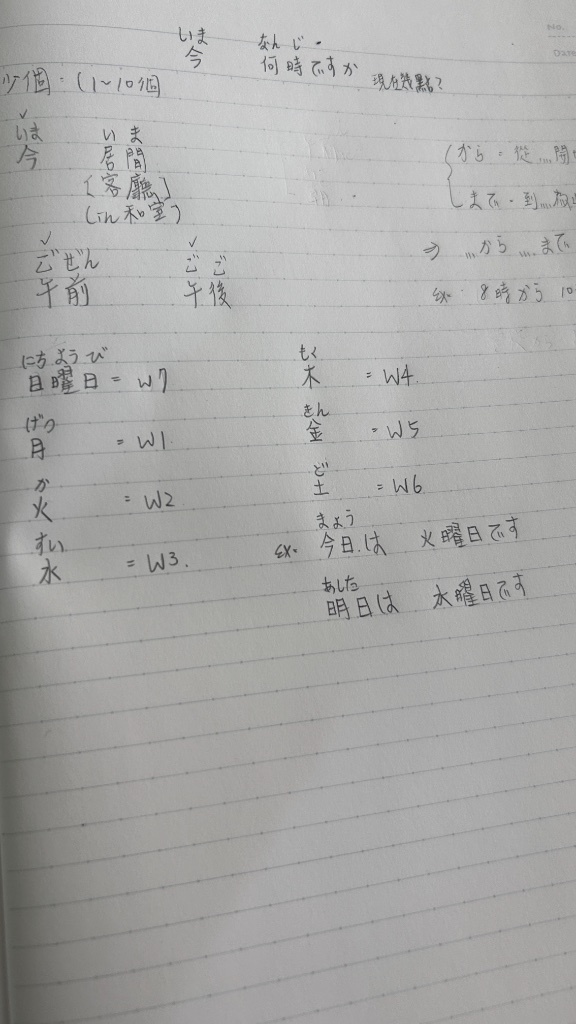 いま なんじ
今 何時ですか 現在幾點?
少個:(1~10個
いま いま
今 居間
[客廳]
(in和室)
から:從....開
まで:到....
⇒ ....から....まで
ex. 8時から 10
ごぜん ごご
午前 午後
にちようび
日曜日 = W7
げつ
月 = W1
か
火 = W2
すい
水 = W3.
もく
木 = W4
きん
金 = W5
ど
土 = W6
きょう
ex. 今日は 火曜日です
あした
明日は 水曜日です